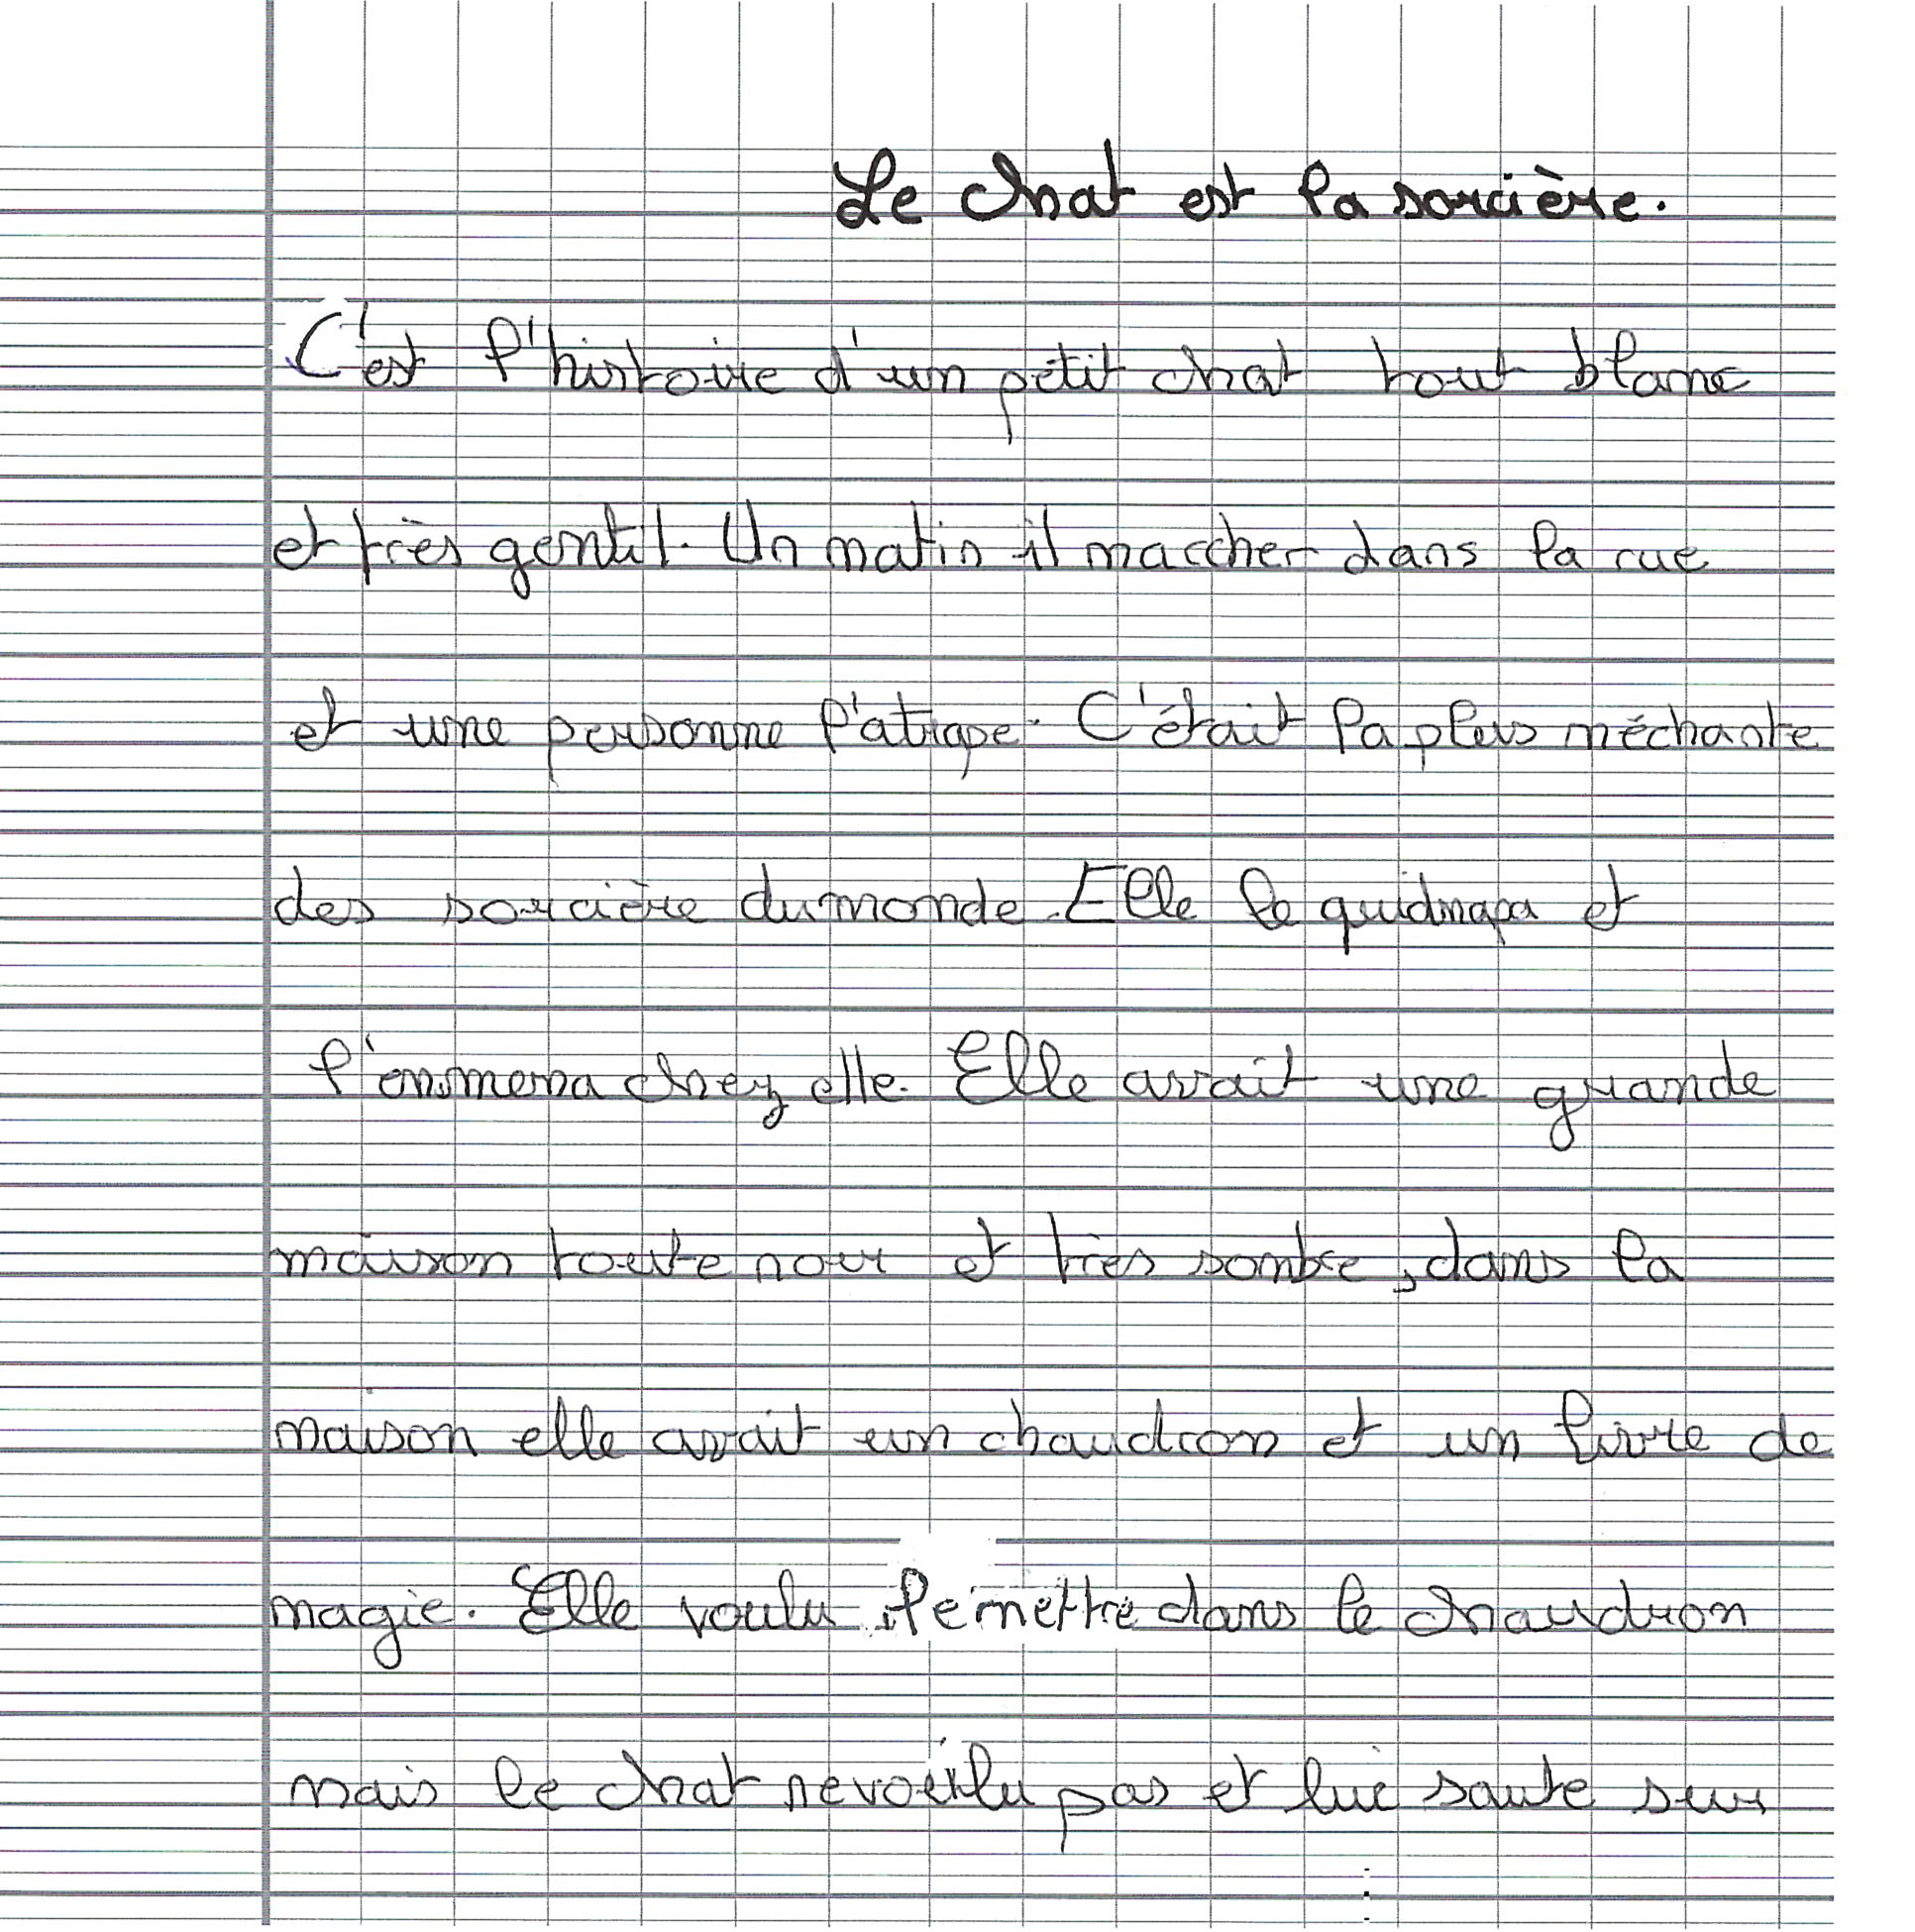 Le chat est la sorcière.
C'est l'histoire d'un petit chat tout blanc
et très gentil. Un matin il marcher dans la rue
et une personne l'atrape. C'était la plus méchante
des sorcière du monde. Elle le quidnapa et
l'emmena chez elle. Elle avait une grande
maison toute noir et très sombre, dans la
maison elle avait un chaudron et un livre de
magie. Elle voulu le mettre dans le chaudron
mais le chat ne voulu pas et lui saute sur